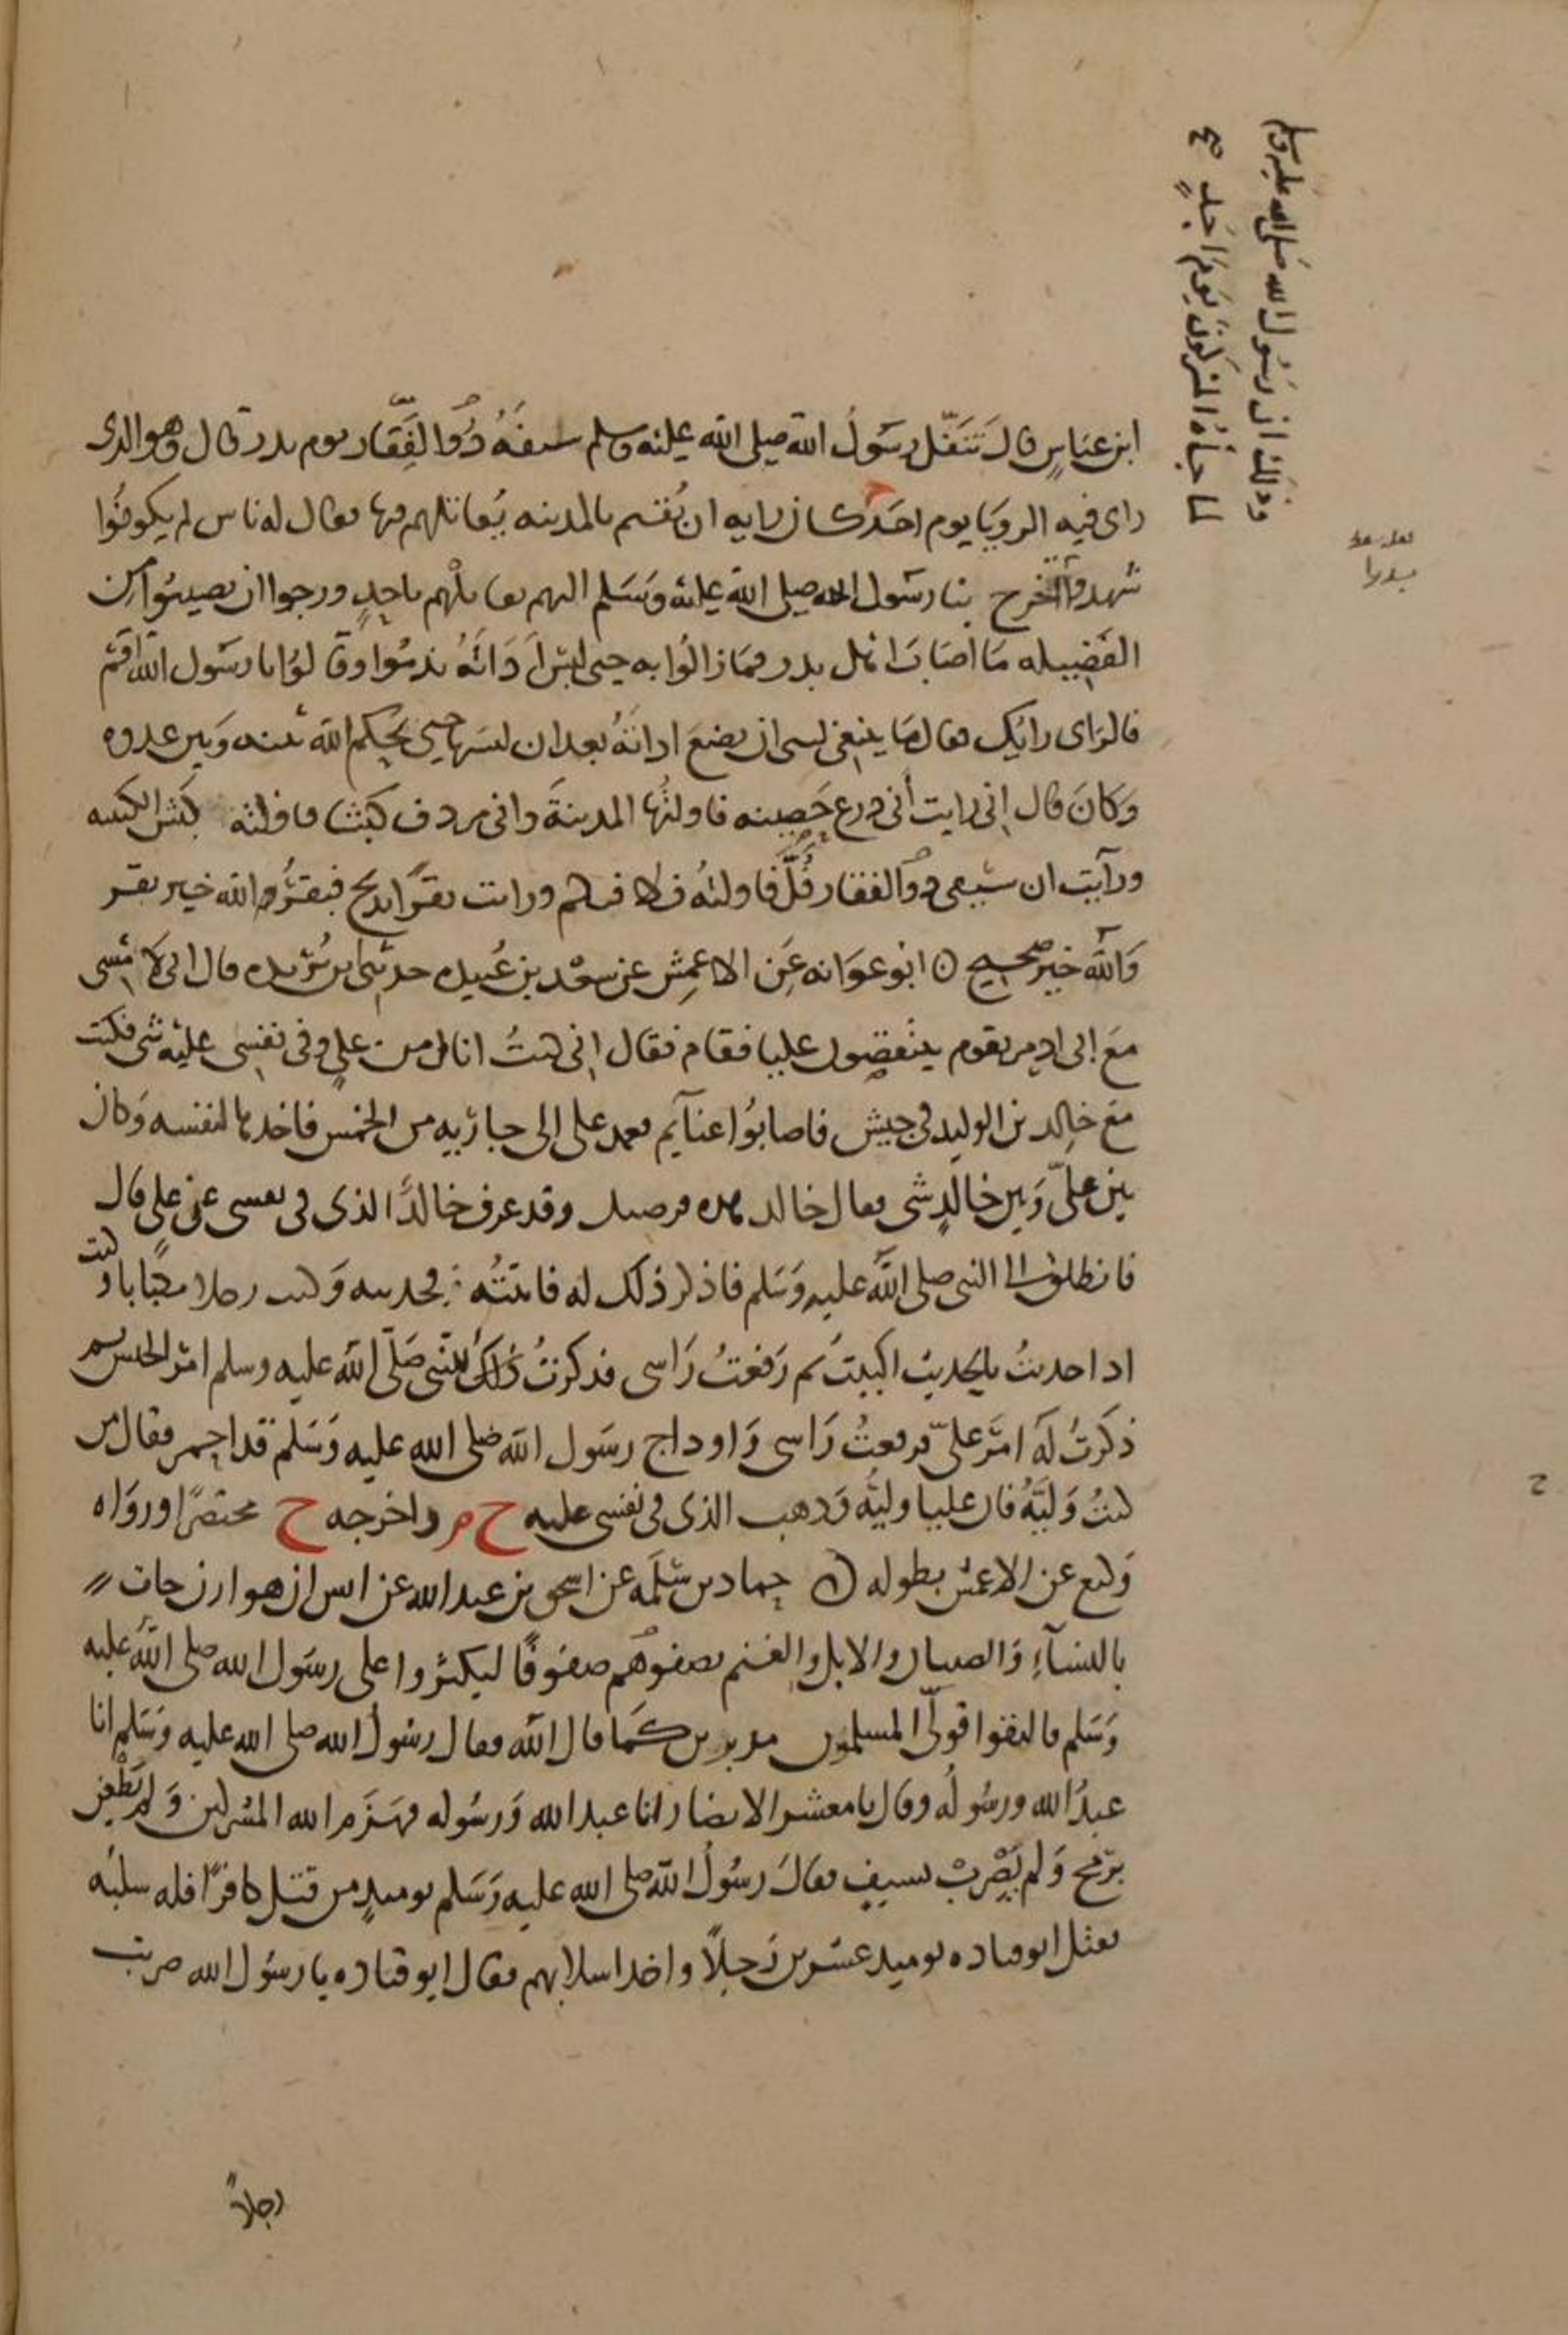 وذلك ان رسول الله صلى الله عليه وسلم
لما جاءه المشركون يوم احد صح
ابن عباس قال تنفل رسول الله صلى الله عليه وسلم سيفه ذو الفقار يوم بدر قال وهو الذى
راى فيه الرويا يوم احد كان رايه ان يقيم بالمدينه يقاتلهم فيها فقال له ناس لم يكونوا
شهدوا تخرج بنا رسول الله صلى الله عليه وسلم اليهم نقاتلهم باحد ورجوا ان يصيبوا من
الفضيله ما اصاب اهل بدر فما زالوا به حتى لبس اداته ندموا وقالوا يا رسول الله اقم
فالراى رايك فقال ما ينبغى لنبى ان يضع اداته بعد ان لبسها حتى يحكم الله بينه وبين عدوه
وكان قال انى رايت أنى فى درع حصينه فاولتها المدينة وانى مردف كبشا فاولته كبش الكتيبه
ورآيت ان سيفى ذو الفقار فُلَّ فاولته فلا فيكم ورايت بقرًا تذبح فبقرٌ والله خير بقر
والله خير صحيح ابو عوانه عن الاعمش عن سعد بن عبيده حدثنى ابن بريده قال انى لامشى
مع ابى اذ مر بقوم ينقصون عليا فقام فقال انى كنتُ انال من على وفى نفسى عليه شى فكنت
مع خالد بن الوليد فى جيش فاصابوا غنآيم فعمد على الى جاريه من الخمس فاخذها لنفسه وكان
بين علىّ وبين خالدٍ شى فقال خالد هذه فرصتك وقد عرف خالدٌ الذى فى نفسى على على قال
فانطلق الى النبى صلى الله عليه وسلم فاذكر ذلك له فاتيته فحدثته وكنت رجلا مكبابا وكنت
اذا حدثتُ بالحديث اكببتُ ثم رفعتُ راسى فذكرتُ ذلك للنبى صلى الله عليه وسلم امر الجيش ثم
ذكرتُ له امر علىّ فرفعتُ راسى واوداج رسول الله صلى الله عليه وسلم قد احمر فقال من
كنتُ وليّهُ فان عليا وليّه وذهب الذى فى نفسى عليه ح م واخرجه ح مختصرًا ورواه
وكيع عن الاعمش بطوله حماد بن سلمه عن اسحق بن عبد الله عن انس ان هوازن جات
بالنسآء والصبيان والابل والغنم يصفوهم صفوفًا ليكثروا على رسول الله صلى الله عليه
وسلم فالتقوا فولّى المسلمون مدبرين كما قال الله فقال رسول الله صلى الله عليه وسلم انا
عبدُ الله ورسوله وقال يا معشر الانصار انا عبد الله ورسوله فهزم الله المشركين ولم يطعن
برمح ولم يضرب بسيف فقال رسول الله صلى الله عليه وسلم يوميذٍ من قتل كافرًا فله سلبه
فقتل ابو قتاده يوميذ عشرين رجلاً واخذ اسلابهم فقال ابو قتاده يا رسول الله ضربت
رجلاً